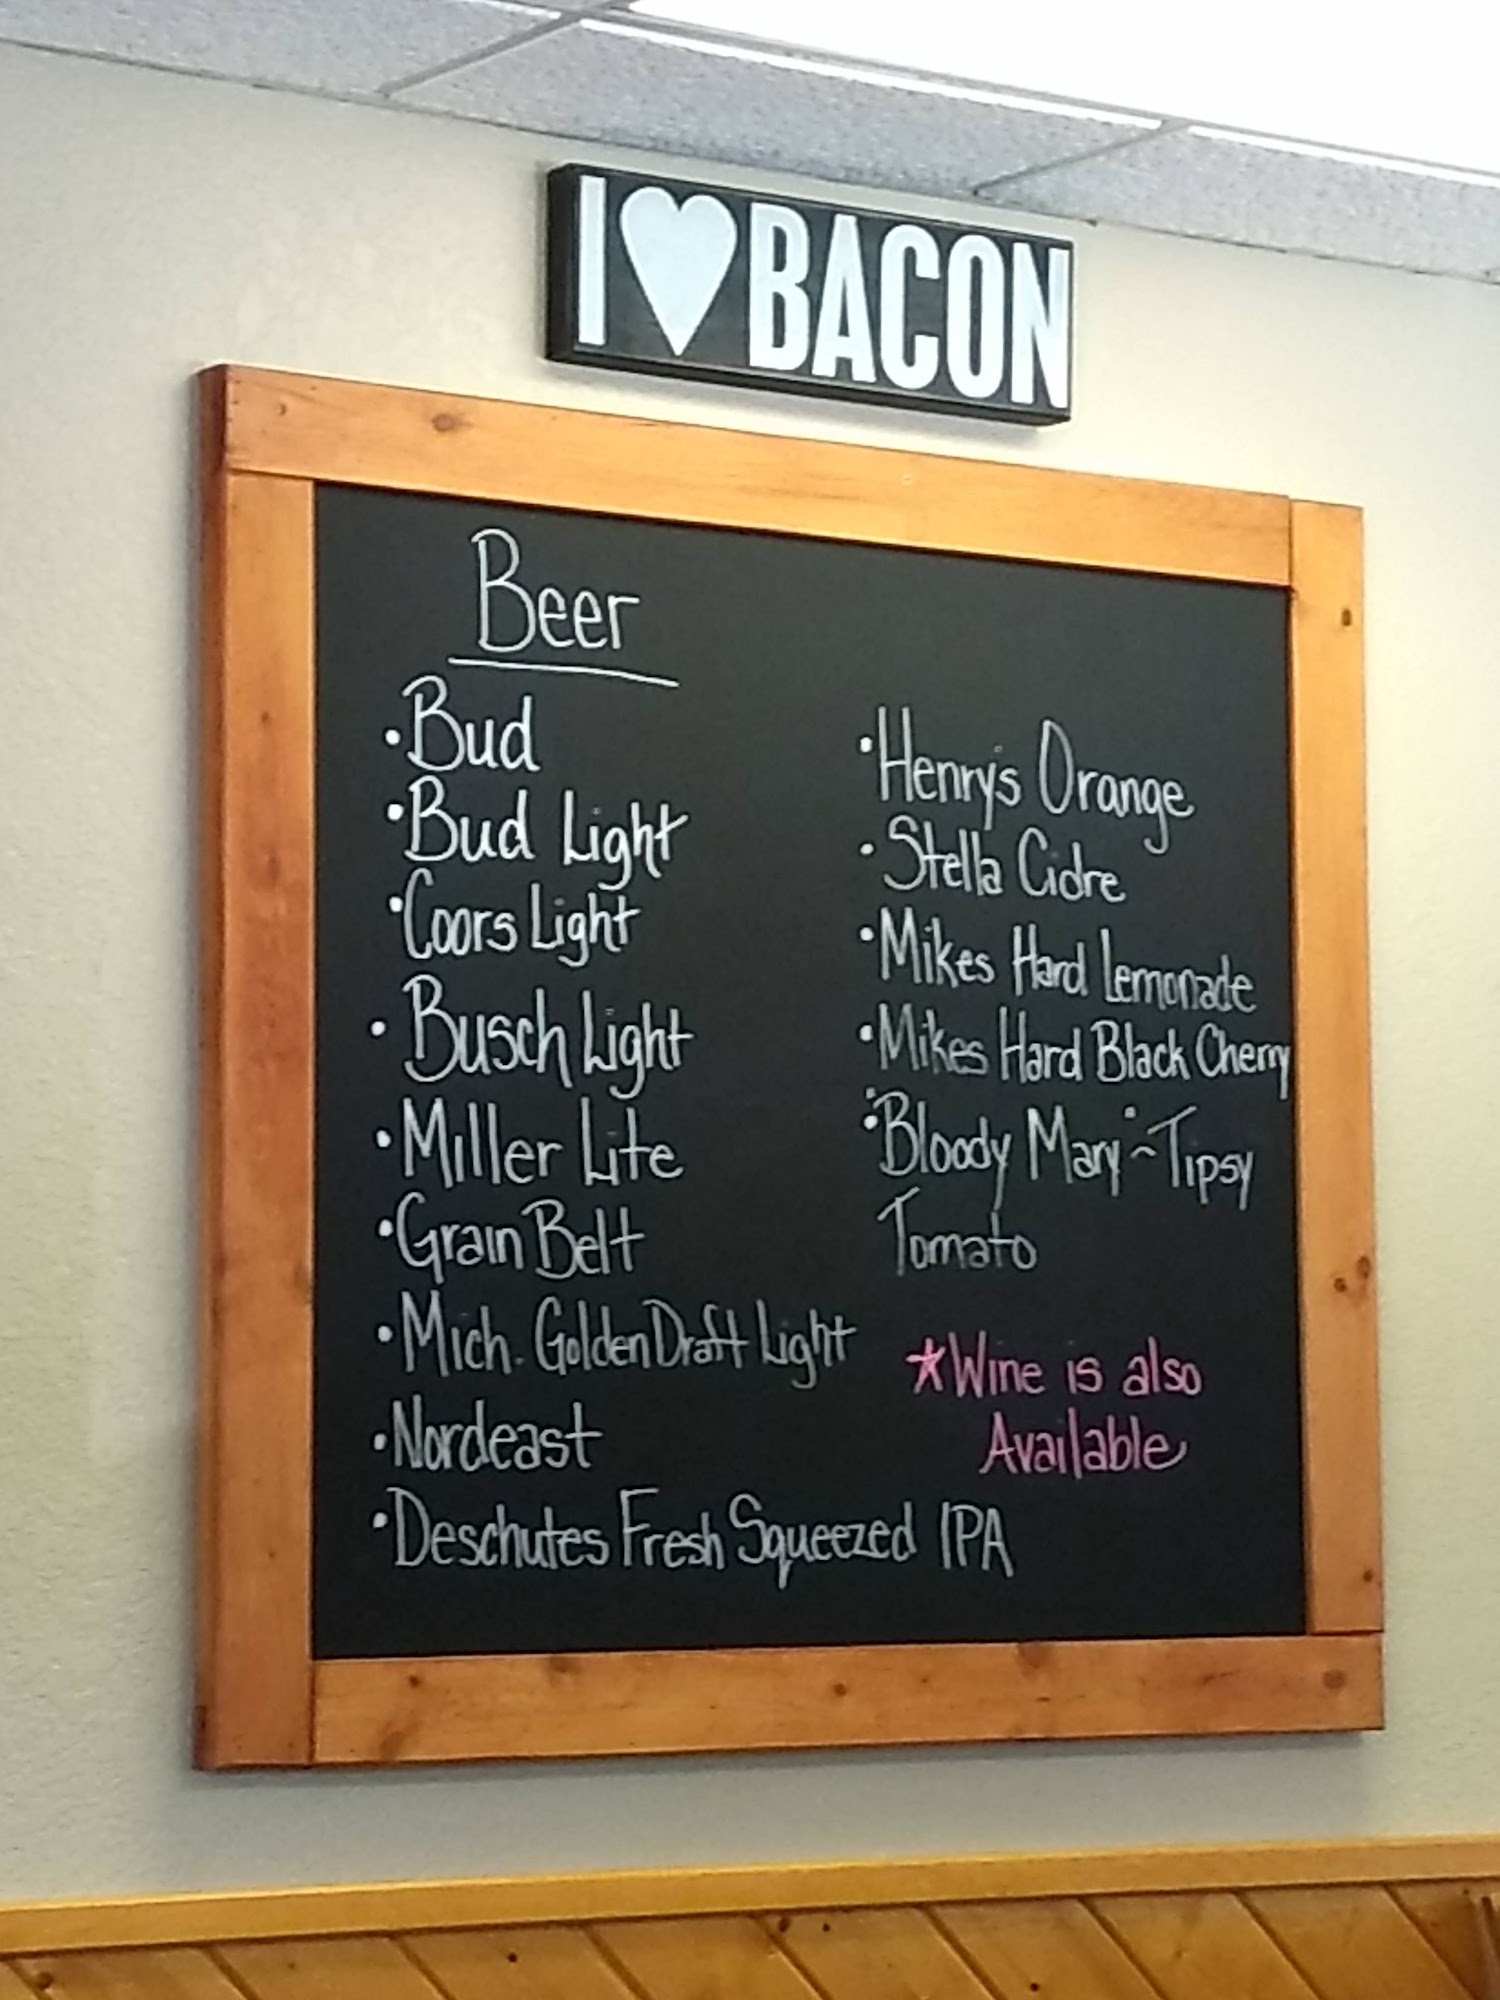 I ♥ BACON
Beer
• Bud
• Bud Light
• Coors Light
• Busch Light
• Miller Lite
• Grain Belt
• Mich. Golden Draft Light
• Nordeast
• Deschutes Fresh Squeezed IPA
• Henry's Orange
• Stella Cidre
• Mikes Hard Lemonade
• Mikes Hard Black Cherry
• Bloody Mary ~ Tipsy
Tomato
*Wine is also
Available